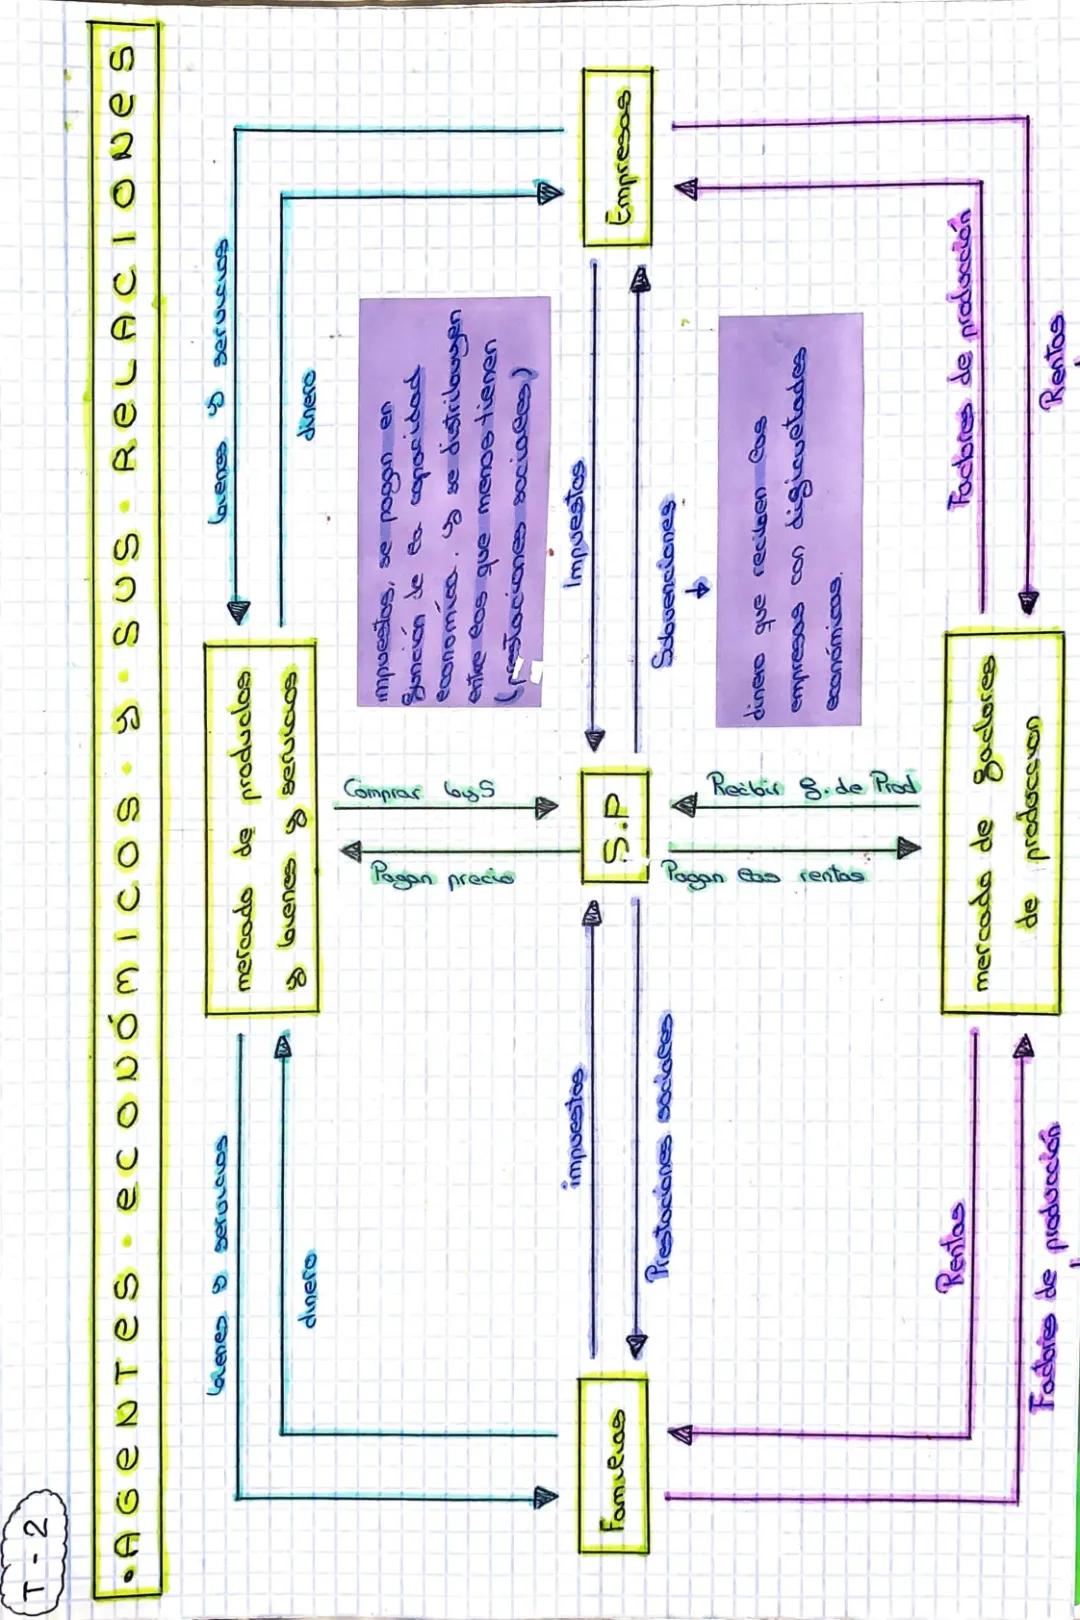 T-2
•AGENTES•ECONÓMICOS•y•SUS•RELACIONES
bienes y servicios
bienes y servicios
dinero
dinero
mercado de productos
y bienes y servicios
impuestos, se pagan en
función de la capacidad
económica. y se distribuyen
entre las que menos tienen
(prestaciones sociales)
Comprar byS
Pagan precio
impuestos
Impuestos
Familias
S.P
Empresas
Prestaciones sociales
Subvenciones
Pagan las rentas
Recibir f. de Prod
dinero que reciben las
empresas con digicuetades
económicas.
Rentas
Factores de producción
mercado de factores
de produccion
Factores de producción
Rentas